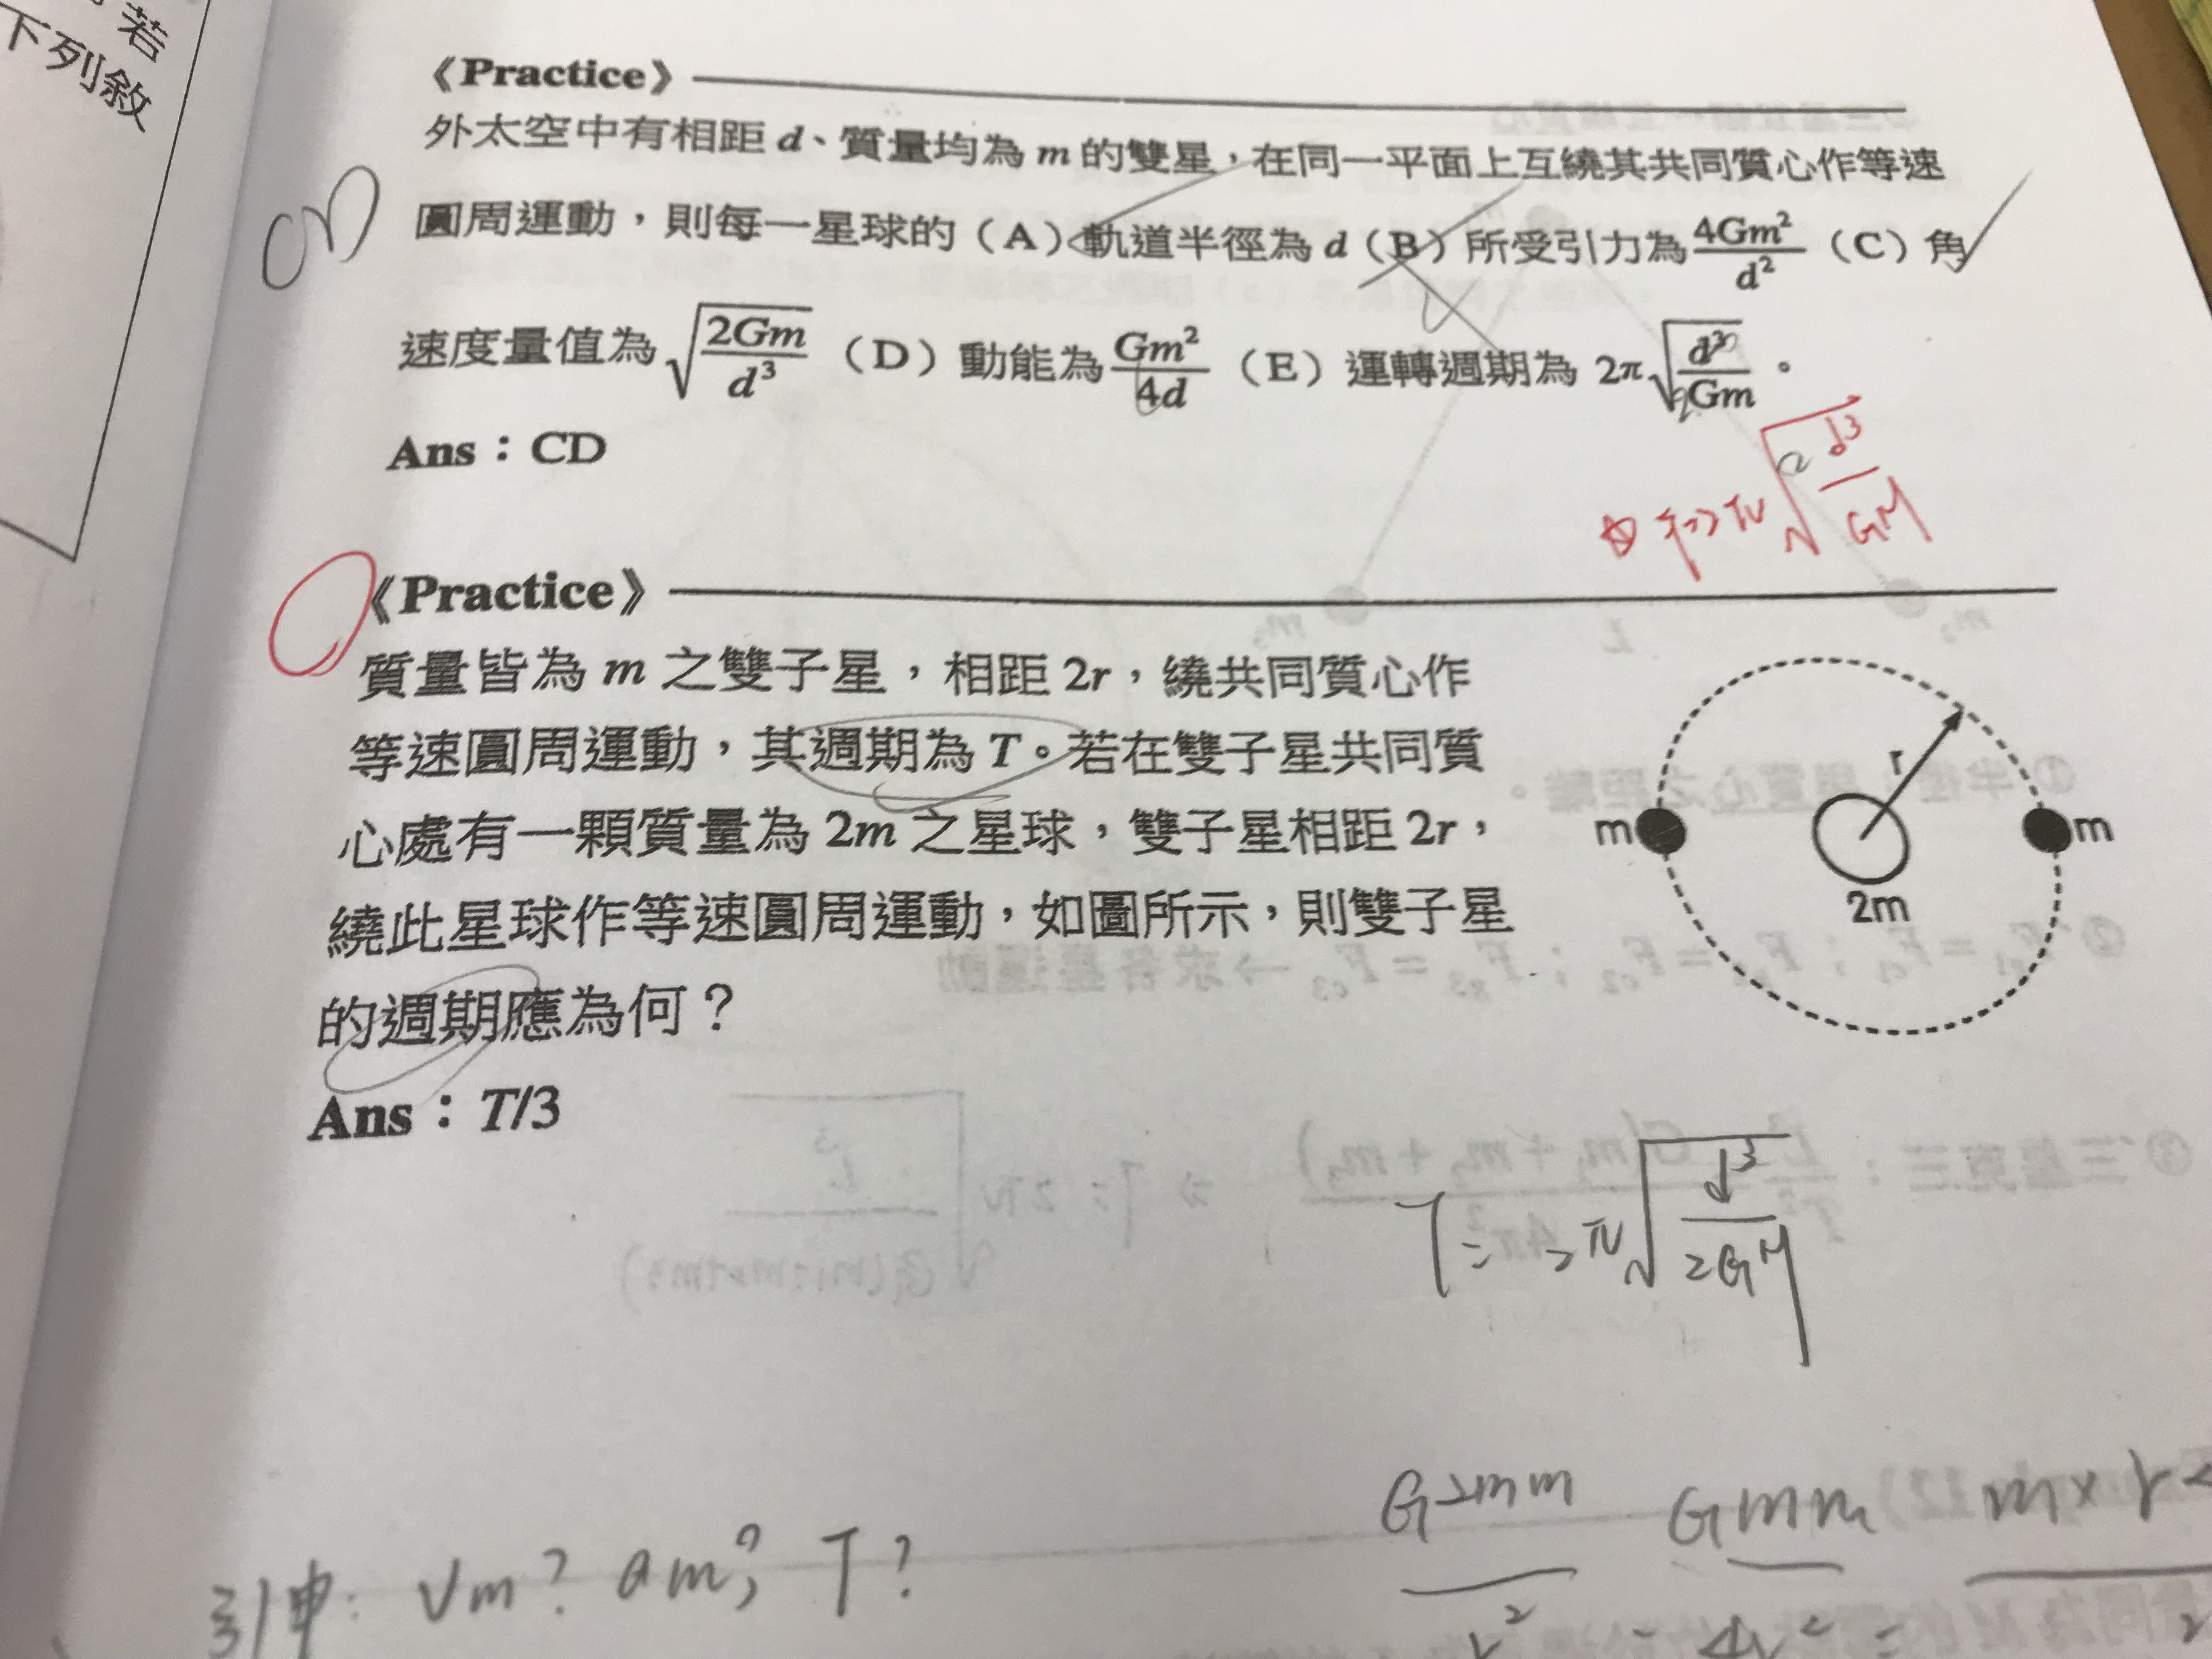 若
下列敘
《Practice》
外太空中有相距 d、質量均為 m 的雙星，在同一平面上互繞其共同質心作等速
圓周運動，則每一星球的（A）軌道半徑為 d（B）所受引力為 4Gm²/d²（C）角
速度量值為 √(2Gm/d³)（D）動能為 Gm²/4d（E）運轉週期為 2π√(d³/Gm)。
Ans：CD
CD
d³
GM
《Practice》
質量皆為 m 之雙子星，相距 2r，繞共同質心作
等速圓周運動，其週期為 T。若在雙子星共同質
心處有一顆質量為 2m 之星球，雙子星相距 2r，
繞此星球作等速圓周運動，如圖所示，則雙子星
的週期應為何？
Ans：T/3
r
m
m
2m
T = 2π√(d³/2GM)
G2mm/r² = Gmm/4r² =
引申：Vm？ am？ T？